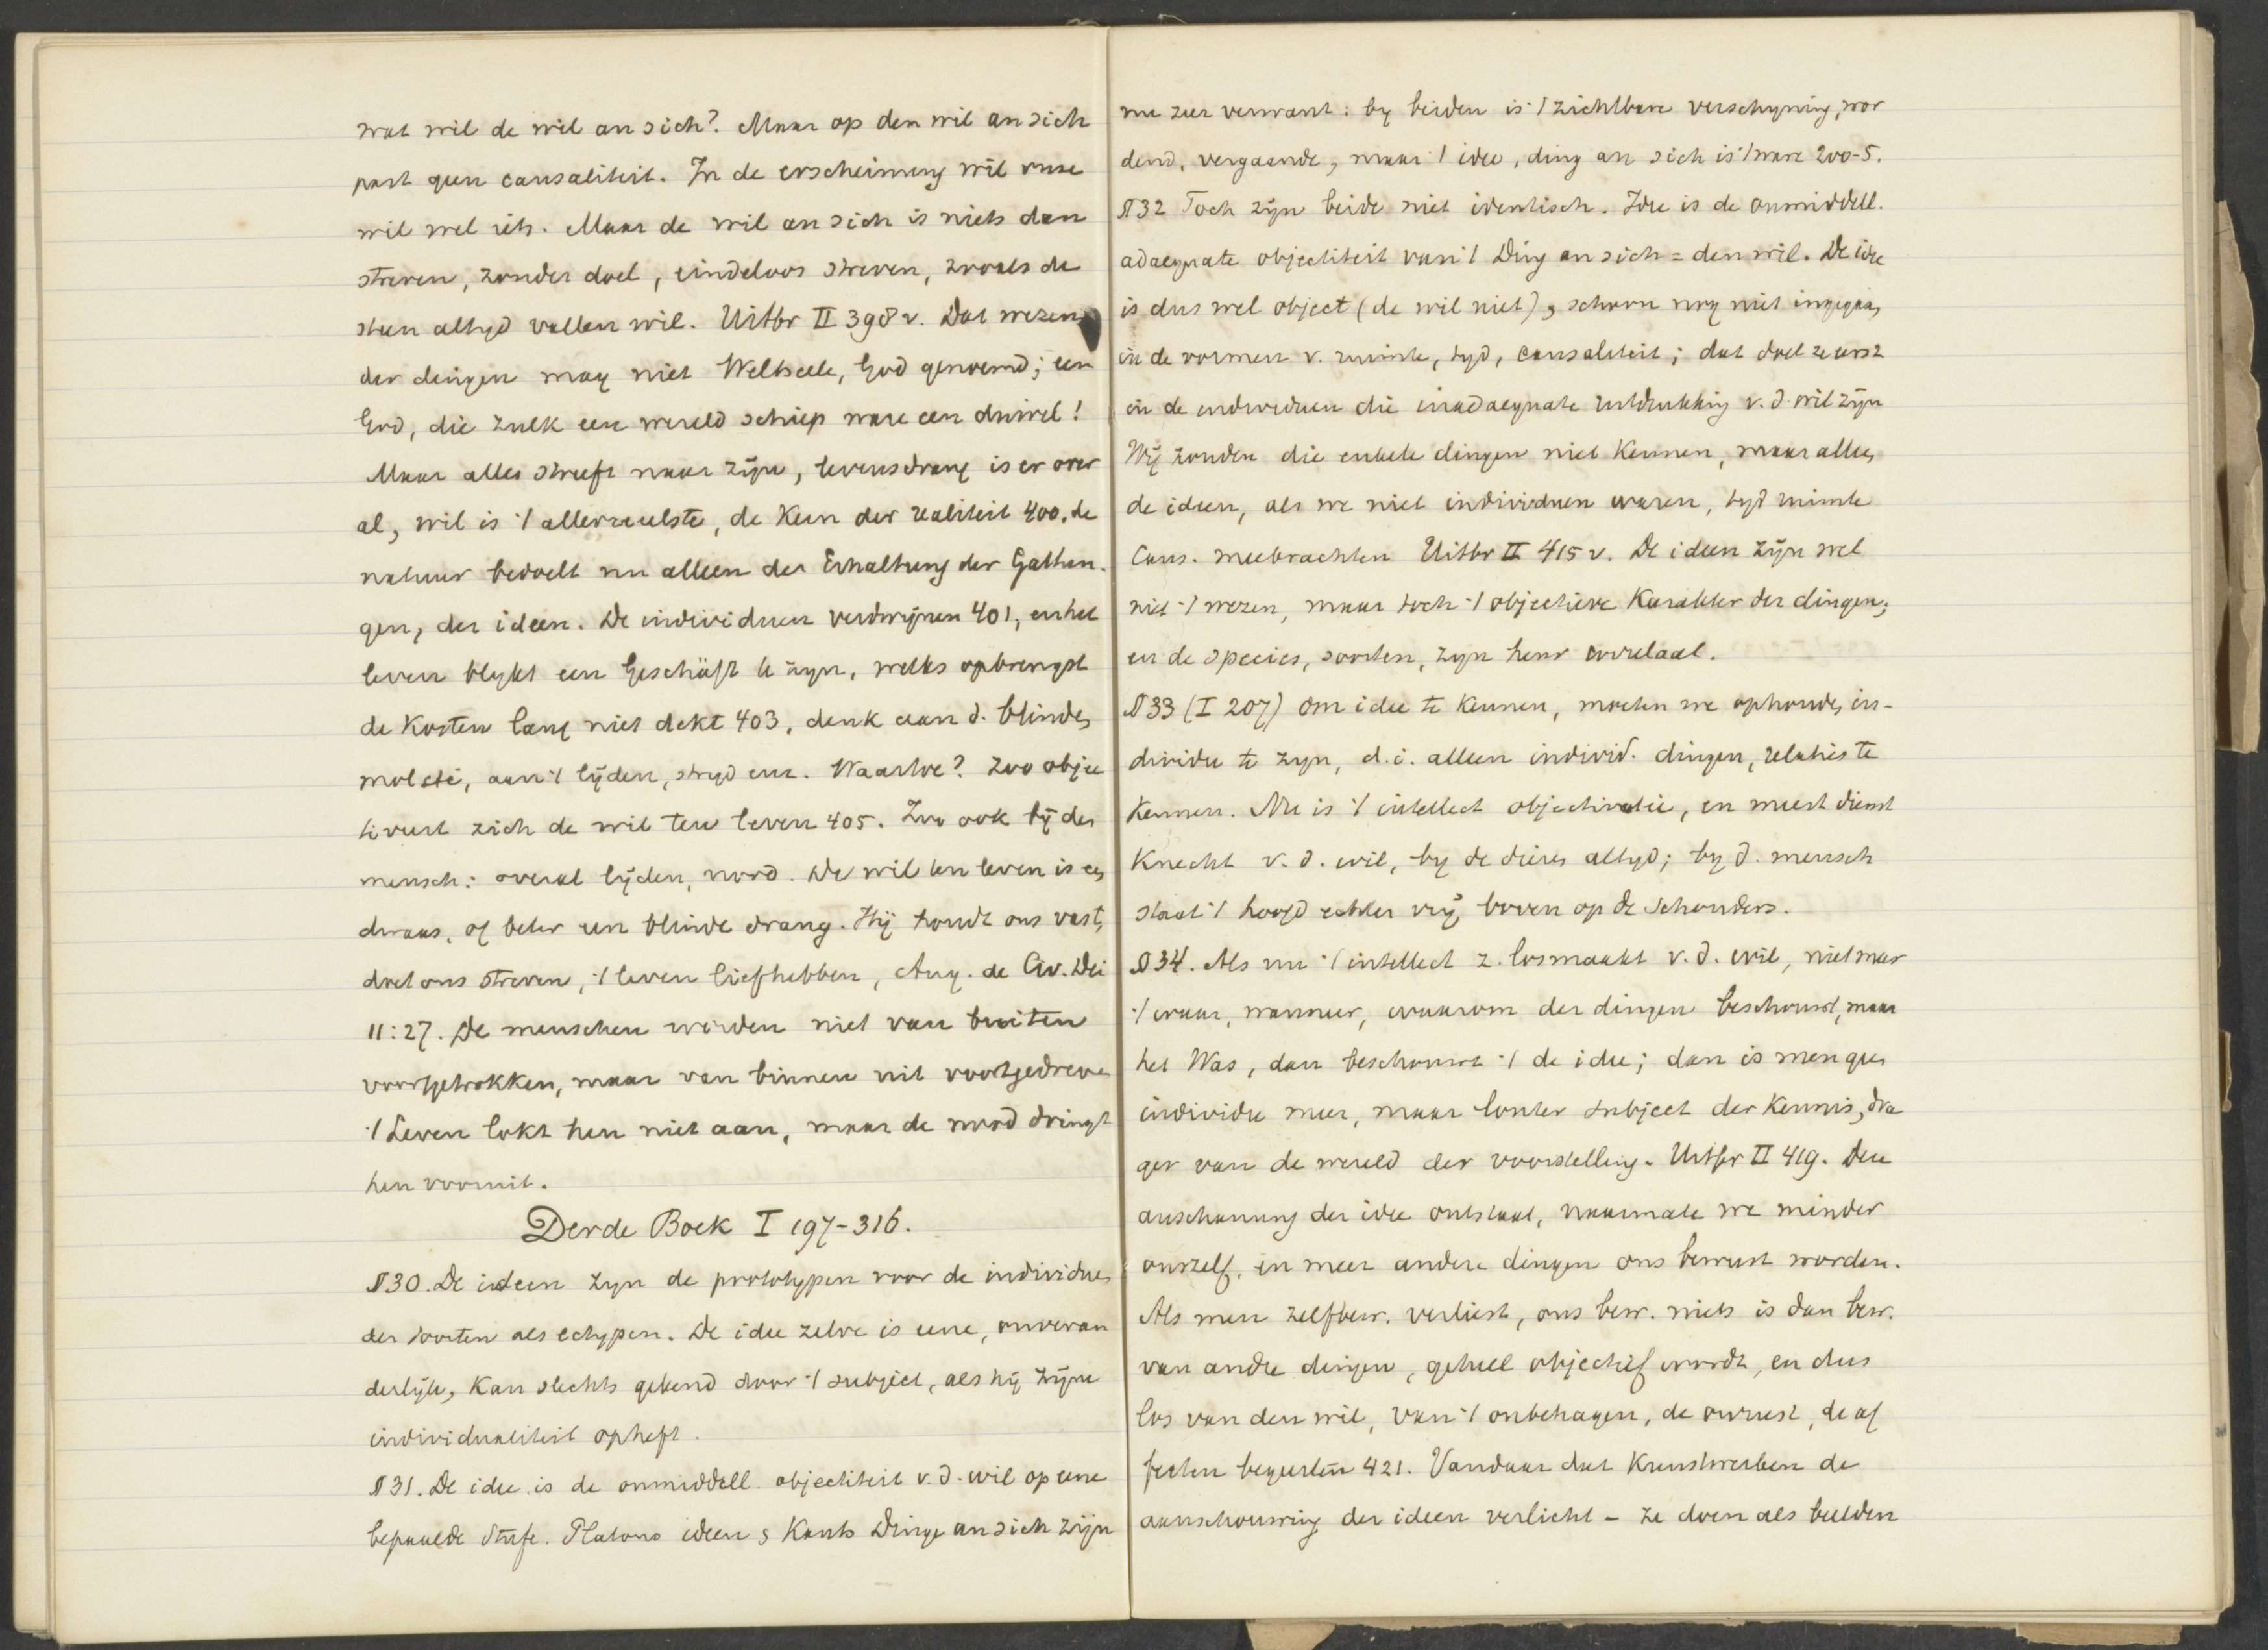 wat wil de wil an sich? Maar op den wil an sich
past geen causaliteit. In de erscheinung wil onze
wil wel iets. Maar de wil an sich is niets dan
streven, zonder doel, eindeloos streven, zooals de
steen altyd vallen wil. Uitbr II 398 v. Dat wezen
der dingen mag niet Weltseele, God genoemd; een
God, die zulk een wereld schiep ware een duivel!
Maar alles streeft naar zijn, levensdrang is er over
al, wil is 't allerreeelste, de Kern der realiteit 400. de
natuur bedoelt nu alleen der Erhaltung der Gattun-
gen, der ideen. De individuen verdwijnen 401, en het
leven blykt een Geschäft te zyn, welks opbrengst
de Kosten lang niet dekt 403, denk aan d. blinden
mol etc, aan 't lijden, stryd enz. Waartoe? Zoo objec
tiveert zich de wil ten leven 405. Zoo ook bij den
mensch: overal lijden, nood. De wil ten leven is een
dwaas, of beter een blinde drang. Hij houdt ons vast,
doet ons streven, 't leven liefhebben, Aug. de Civ. Dei
11:27. De menschen worden niet van buiten
voortgetrokken, maar van binnen uit voortgedreven
't Leven lokt hen niet aan, maar de nood dringt
hen vooruit.
Derde Boek I 197-316.
§ 30. De ideen zyn de prototypen voor de individuen
der soorten als ectypen. De idee zelve is eene, onveran
derlijk, Kan slechts gekend door 't subject, als hij zijne
individualiteit opheft.
§ 31. De idee is de onmiddell. objectiteit v. d. wil op eene
bepaalde Stufe. Platons ideen & Kants Dinge an sich zijn
nu zeer verwant: by beiden is 't zichtbare verschyning, wor
dend, vergaande, maar 't idee, ding an sich is 't ware 200-5.
§ 32 Toch zijn beide niet identisch. Idee is de onmiddell.
adaequate objectiteit van 't Ding an sich = den wil. De idee
is dus wel object (de wil niet), schoon nog niet ingegaan
in de vormen v. ruimte, tyd, causaliteit; dat doet ze eerst
in de individuen die inadaequate uitdrukking v. d. wil zijn
Wij zouden die enkele dingen niet Kennen, maar alleen
de ideen, als we niet individuen waren, tyd ruimte
Caus. meebrachten Uitbr II 415 v. De ideen zijn wel
niet 't wezen, maar toch 't objectieve Karakter der dingen;
en de species, soorten, zyn heur correlaat.
§ 33 (I 207) Om idee te Kennen, moeten we ophouden in-
dividu te zyn, d.i. alleen individ. dingen, relaties te
Kennen. Nu is 't intellect objectivatie, en meest dienst
Knecht v. d. wil, by de dieren altyd; by d. mensch
staat 't hoofd echter vrij boven op de schouders.
§ 34. Als nu 't intellect z. losmaakt v. d. wil, niet meer
't waar, wanneer, waarom der dingen beschouwt, maar
het Was, dan beschouwt 't de idee; dan is men geen
individu meer, maar louter subject der Kennis, dra
ger van de wereld der voorstelling. Uitbr II 419. Deze
anschauung der idee ontstaat, naarmate we minder
onszelf, en meer andere dingen ons bewust worden.
Als men zelfbew. verliest, ons bew. niets is dan bew.
van andre dingen, geheel objectief wordt, en dus
los van den wil, van 't onbehagen, de onrust, de af
fecten begeerten 421. Vandaar dat Kunstwerken de
aanschouwing der ideen verlicht – ze doen als beelden